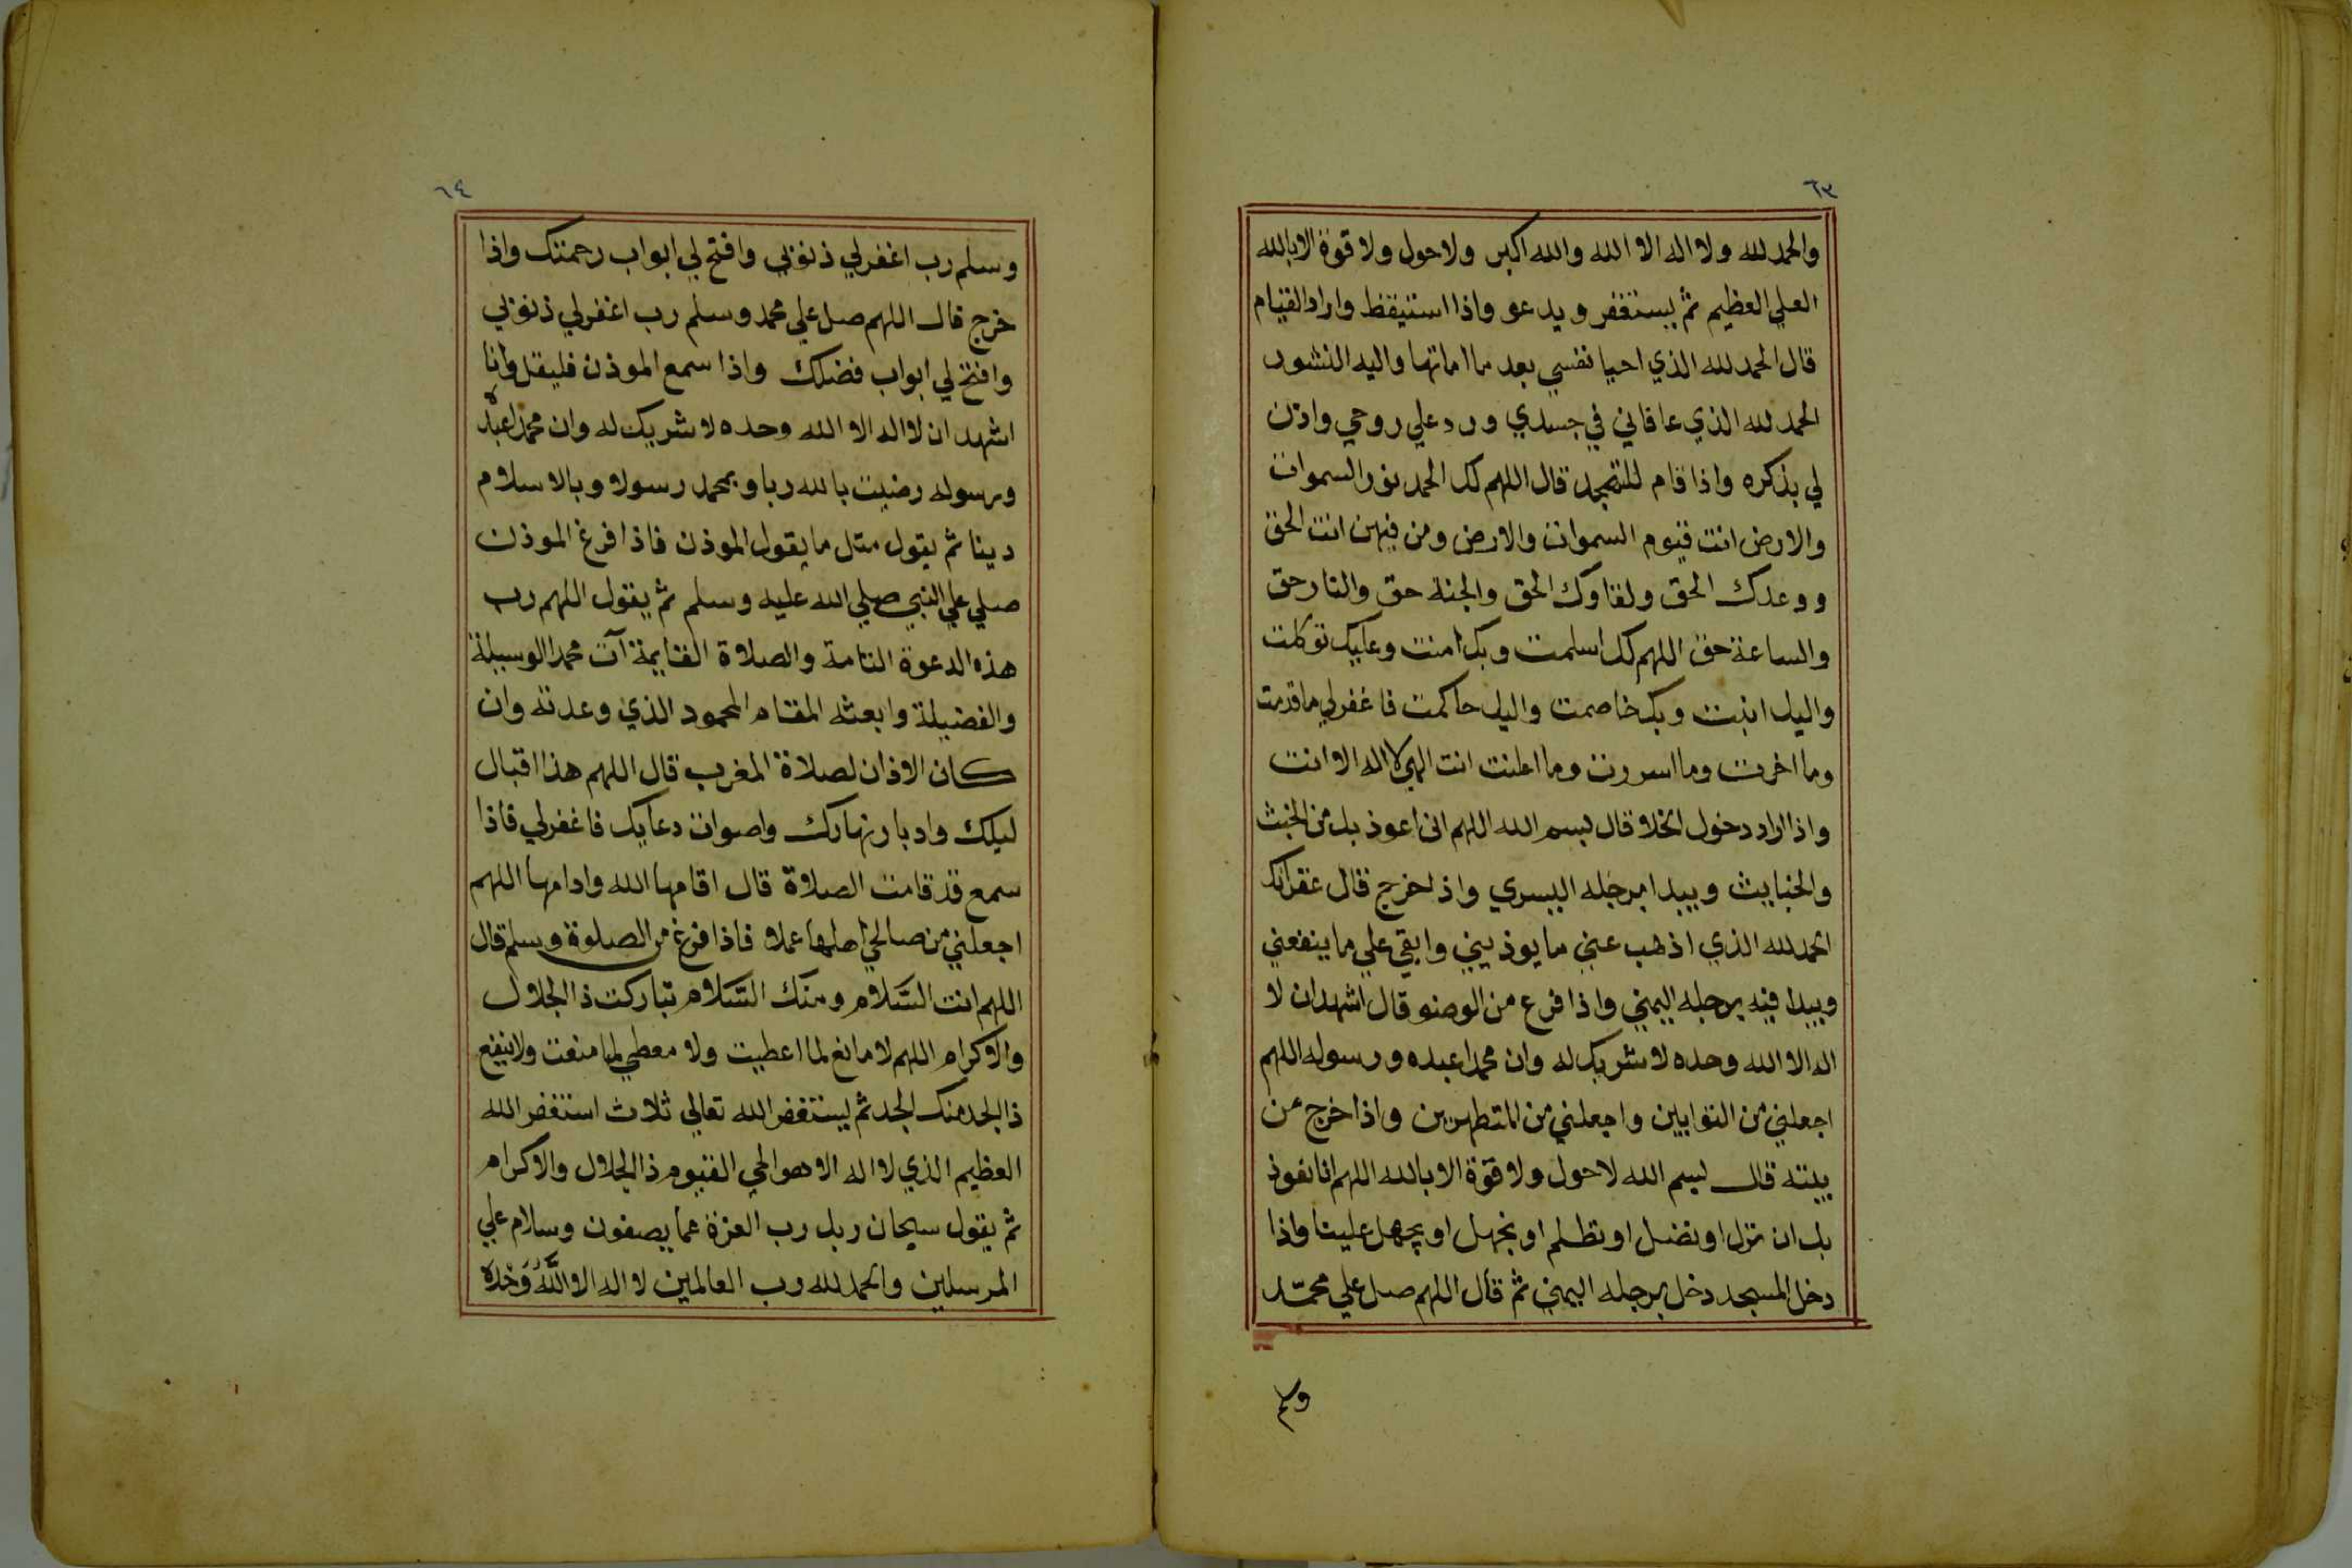 ٦٣
والحمد لله ولا اله الا الله والله اكبر ولا حول ولا قوة الا بالله
العلي العظيم ثم يستغفر ويدعو واذا استيقظ واراد القيام
قال الحمد لله الذي احيا نفسي بعد ما اماتها واليه النشور
الحمد لله الذي عافاني في جسدي ورد علي روحي واذن
لي بذكره واذا قام للتهجد قال اللهم لك الحمد نور السموات
والارض انت قيوم السموات والارض ومن فيهن انت الحق
ووعدك الحق ولقاوك الحق والجنة حق والنار حق
والساعة حق اللهم لك اسلمت وبك امنت وعليك توكلت
واليك انبت وبك خاصمت واليك حاكمت فاغفر لي ما قدمت
وما اخرت وما اسررت وما اعلنت انت الهي لا اله الا انت
واذا اراد دخول الخلا قال بسم الله اللهم اني اعوذ بك من الخبث
والخبايث ويبدا برجله اليسري واذا خرج قال غفرانك
الحمد لله الذي اذهب عني ما يوذيني وابقي علي ما ينفعني
ويبدا فيه برجله اليمني واذا فرع من الوضو قال اشهد ان لا
اله الا الله وحده لا شريك له وان محمدا عبده ورسوله اللهم
اجعلني من التوابين واجعلني من المتطهرين واذا خرج من
بيته قال بسم الله لا حول ولا قوة الا بالله اللهم انا نعوذ
بك ان نزل او نضل او نظلم او نجهل او يجهل علينا واذا
دخل المسجد دخل برجله اليمني ثم قال اللهم صل علي محمّد
وسلم
٦٤
وسلم رب اغفر لي ذنوبي وافتح لي ابواب رحمتك واذا
خرج قال اللهم صل علي محمد وسلم رب اغفر لي ذنوبي
وافتح لي ابواب فضلك واذا سمع الموذن فليقل وانا
اشهد ان لا اله الا الله وحده لا شريك له وان محمدا عبده
ورسوله رضيت بالله ربا وبمحمد رسولا وبالاسلام
دينا ثم يقول مثل ما يقول الموذن فاذا فرغ الموذن
صلي علي النبي صلي الله عليه وسلم ثم يقول اللهم رب
هذه الدعوة التامة والصلاة القايمة آت محمدا الوسيلة
والفضيلة وابعثه المقام المحمود الذي وعدته وان
كان الاذان لصلاة المغرب قال اللهم هذا اقبال
ليلك وادبار نهارك واصوات دعايك فاغفر لي فاذا
سمع قد قامت الصلاة قال اقامها الله وادامها اللهم
اجعلني من صالحي اهلها عملا فاذا فرغ من الصلوة وسلم قال
اللهم انت السَّلام ومنك السَّلام تباركت ذا الجلال
والاكرام اللهم لا مانع لما اعطيت ولا معطي لما منعت ولا ينفع
ذا الجد منك الجد ثم ليستغفر الله تعالي ثلاث استغفر الله
العظيم الذي لا اله الا هو الحي القيوم ذا الجلال والاكرام
ثم يقول سبحان ربك رب العزة عما يصفون وسلام علي
المرسلين والحمد لله رب العالمين لا اله الا اللَّهُ وَحْدَهُ